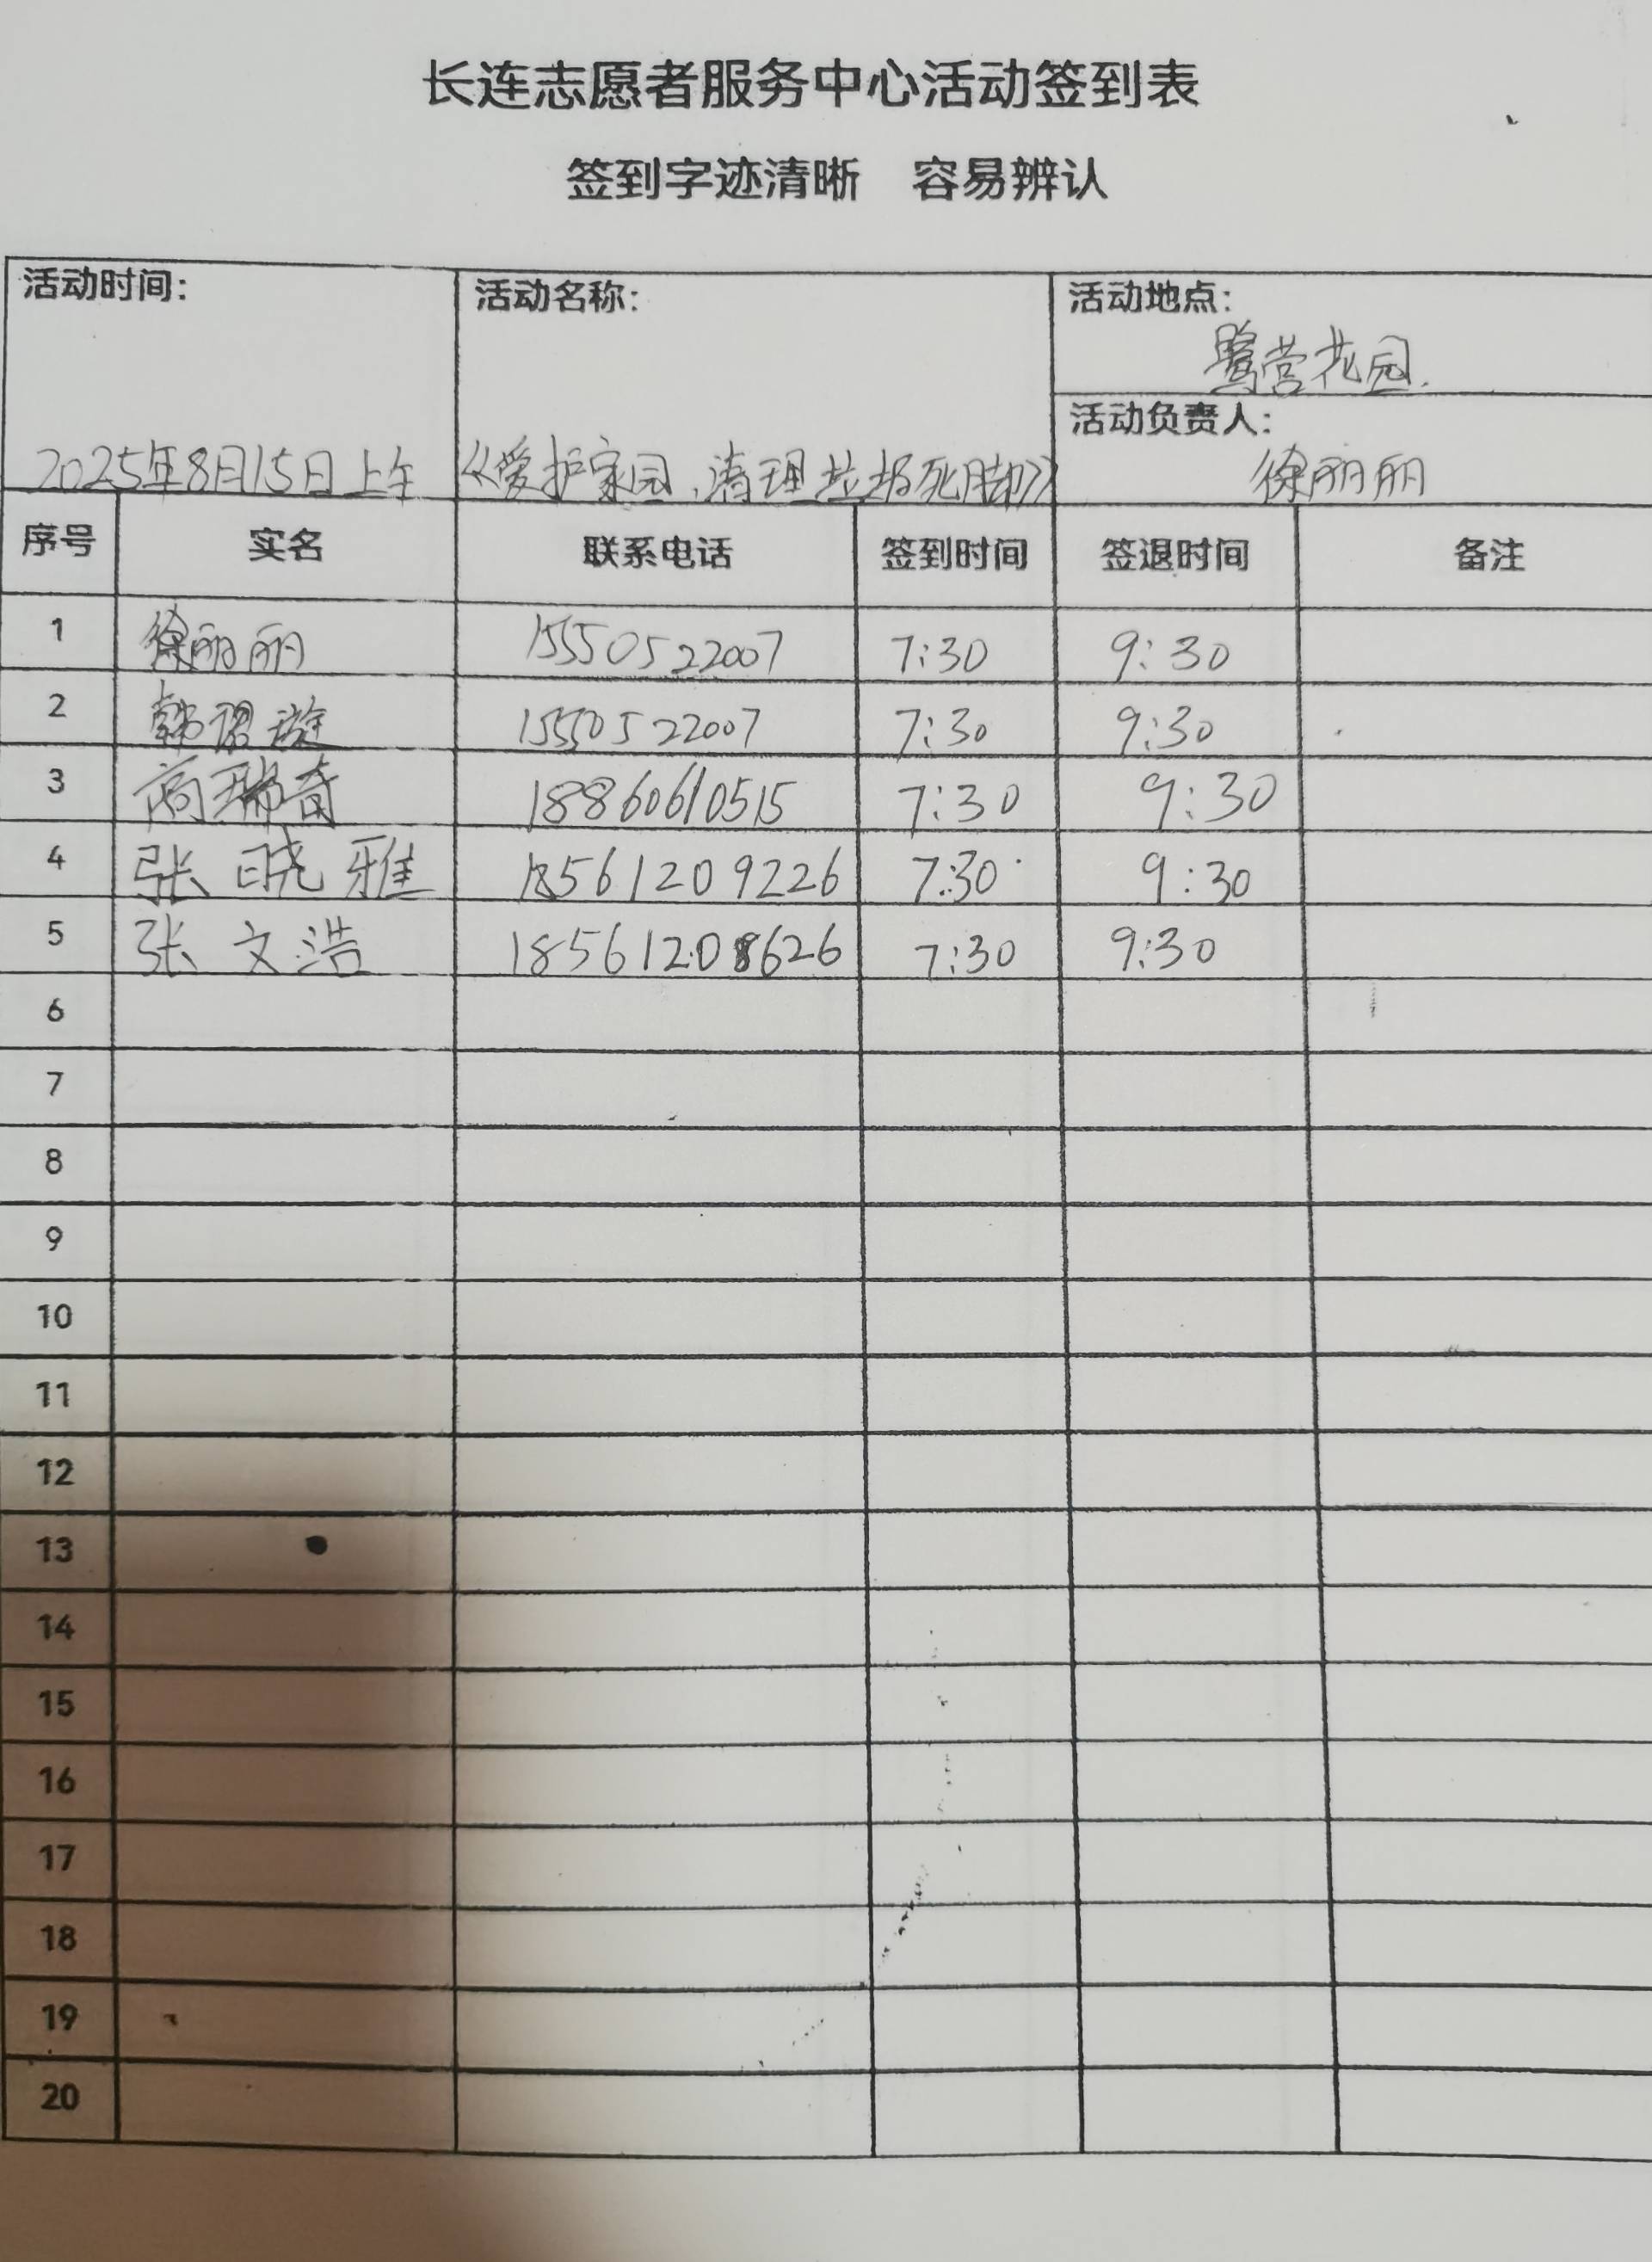 长连志愿者服务中心活动签到表
签到字迹清晰 容易辨认
活动时间: 活动名称: 活动地点:
鹭营花园.
活动负责人:
2025年8月15日上午 《爱护家园、清理垃圾死脚》 徐丽丽
序号 实名 联系电话 签到时间 签退时间 备注
1 徐丽丽 15550522007 7:30 9:30
2 韩 15550522007 7:30 9:30
3 高瑞奇 18860610515 7:30 9:30
4 张晓雅 18561209226 7:30 9:30
5 张文浩 18561208626 7:30 9:30
6
7
8
9
10
11
12
13
14
15
16
17
18
19
20